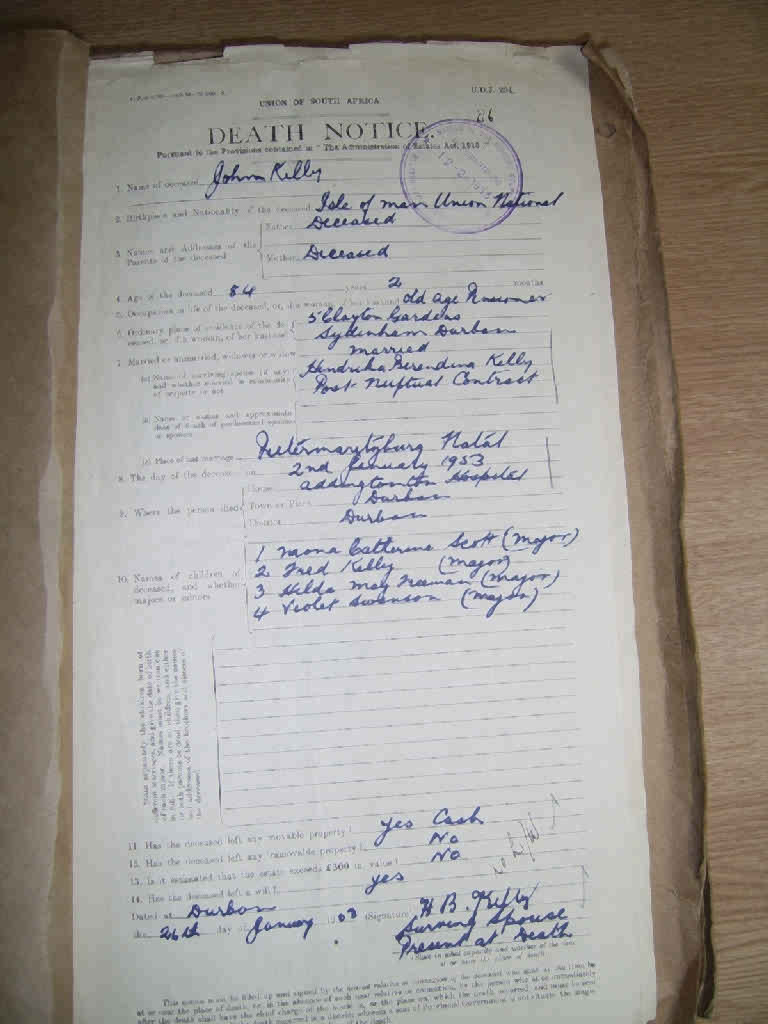 U.D.J. 294.
UNION OF SOUTH AFRICA
86
DEATH NOTICE.
Pursuant to the Provisions contained in "The Administration of Estates Act, 1913"
1. Name of deceased John Kelly
2. Birthplace and Nationality of the deceased Isle of man Union National
3. Names and Addresses of the Parents of the deceased
Father Deceased
Mother Deceased
4. Age of the deceased 84 years 2 months
5. Occupation in life of the deceased, or, if a woman, of her husband old age Pensioner
6. Ordinary place of residence of the deceased, or, if a woman, of her husband
5 Clayton Gardens
Sydenham Durban
7. Married or unmarried, widower or widow married
(a) Name of surviving spouse (if any) and whether married in community of property or not
Hendrika Berendina Kelly
Post-Nuptual Contract
(b) Name or names and approximate date of death of predeceased spouse or spouses
(c) Place of last marriage Pietermaritzburg Natal
8. The day of the decease, on 2nd January 1953
9. Where the person died
House Addington Hospital
Town or Place Durban
District Durban
10. Names of children of deceased, and whether majors or minors
1 mona Catherine Scott (major)
2 Fred Kelly (major)
3 Hilda May Freeman (major)
4 Violet Swanson (major)
11. Has the deceased left any movable property? yes Cash
12. Has the deceased left any immovable property? No
13. Is it estimated that the estate exceeds £300 in value? No
14. Has the deceased left a will? yes
Dated at Durban
the 26th day of January (Signature) H B. Kelly
Surving Spouse
Present at Death